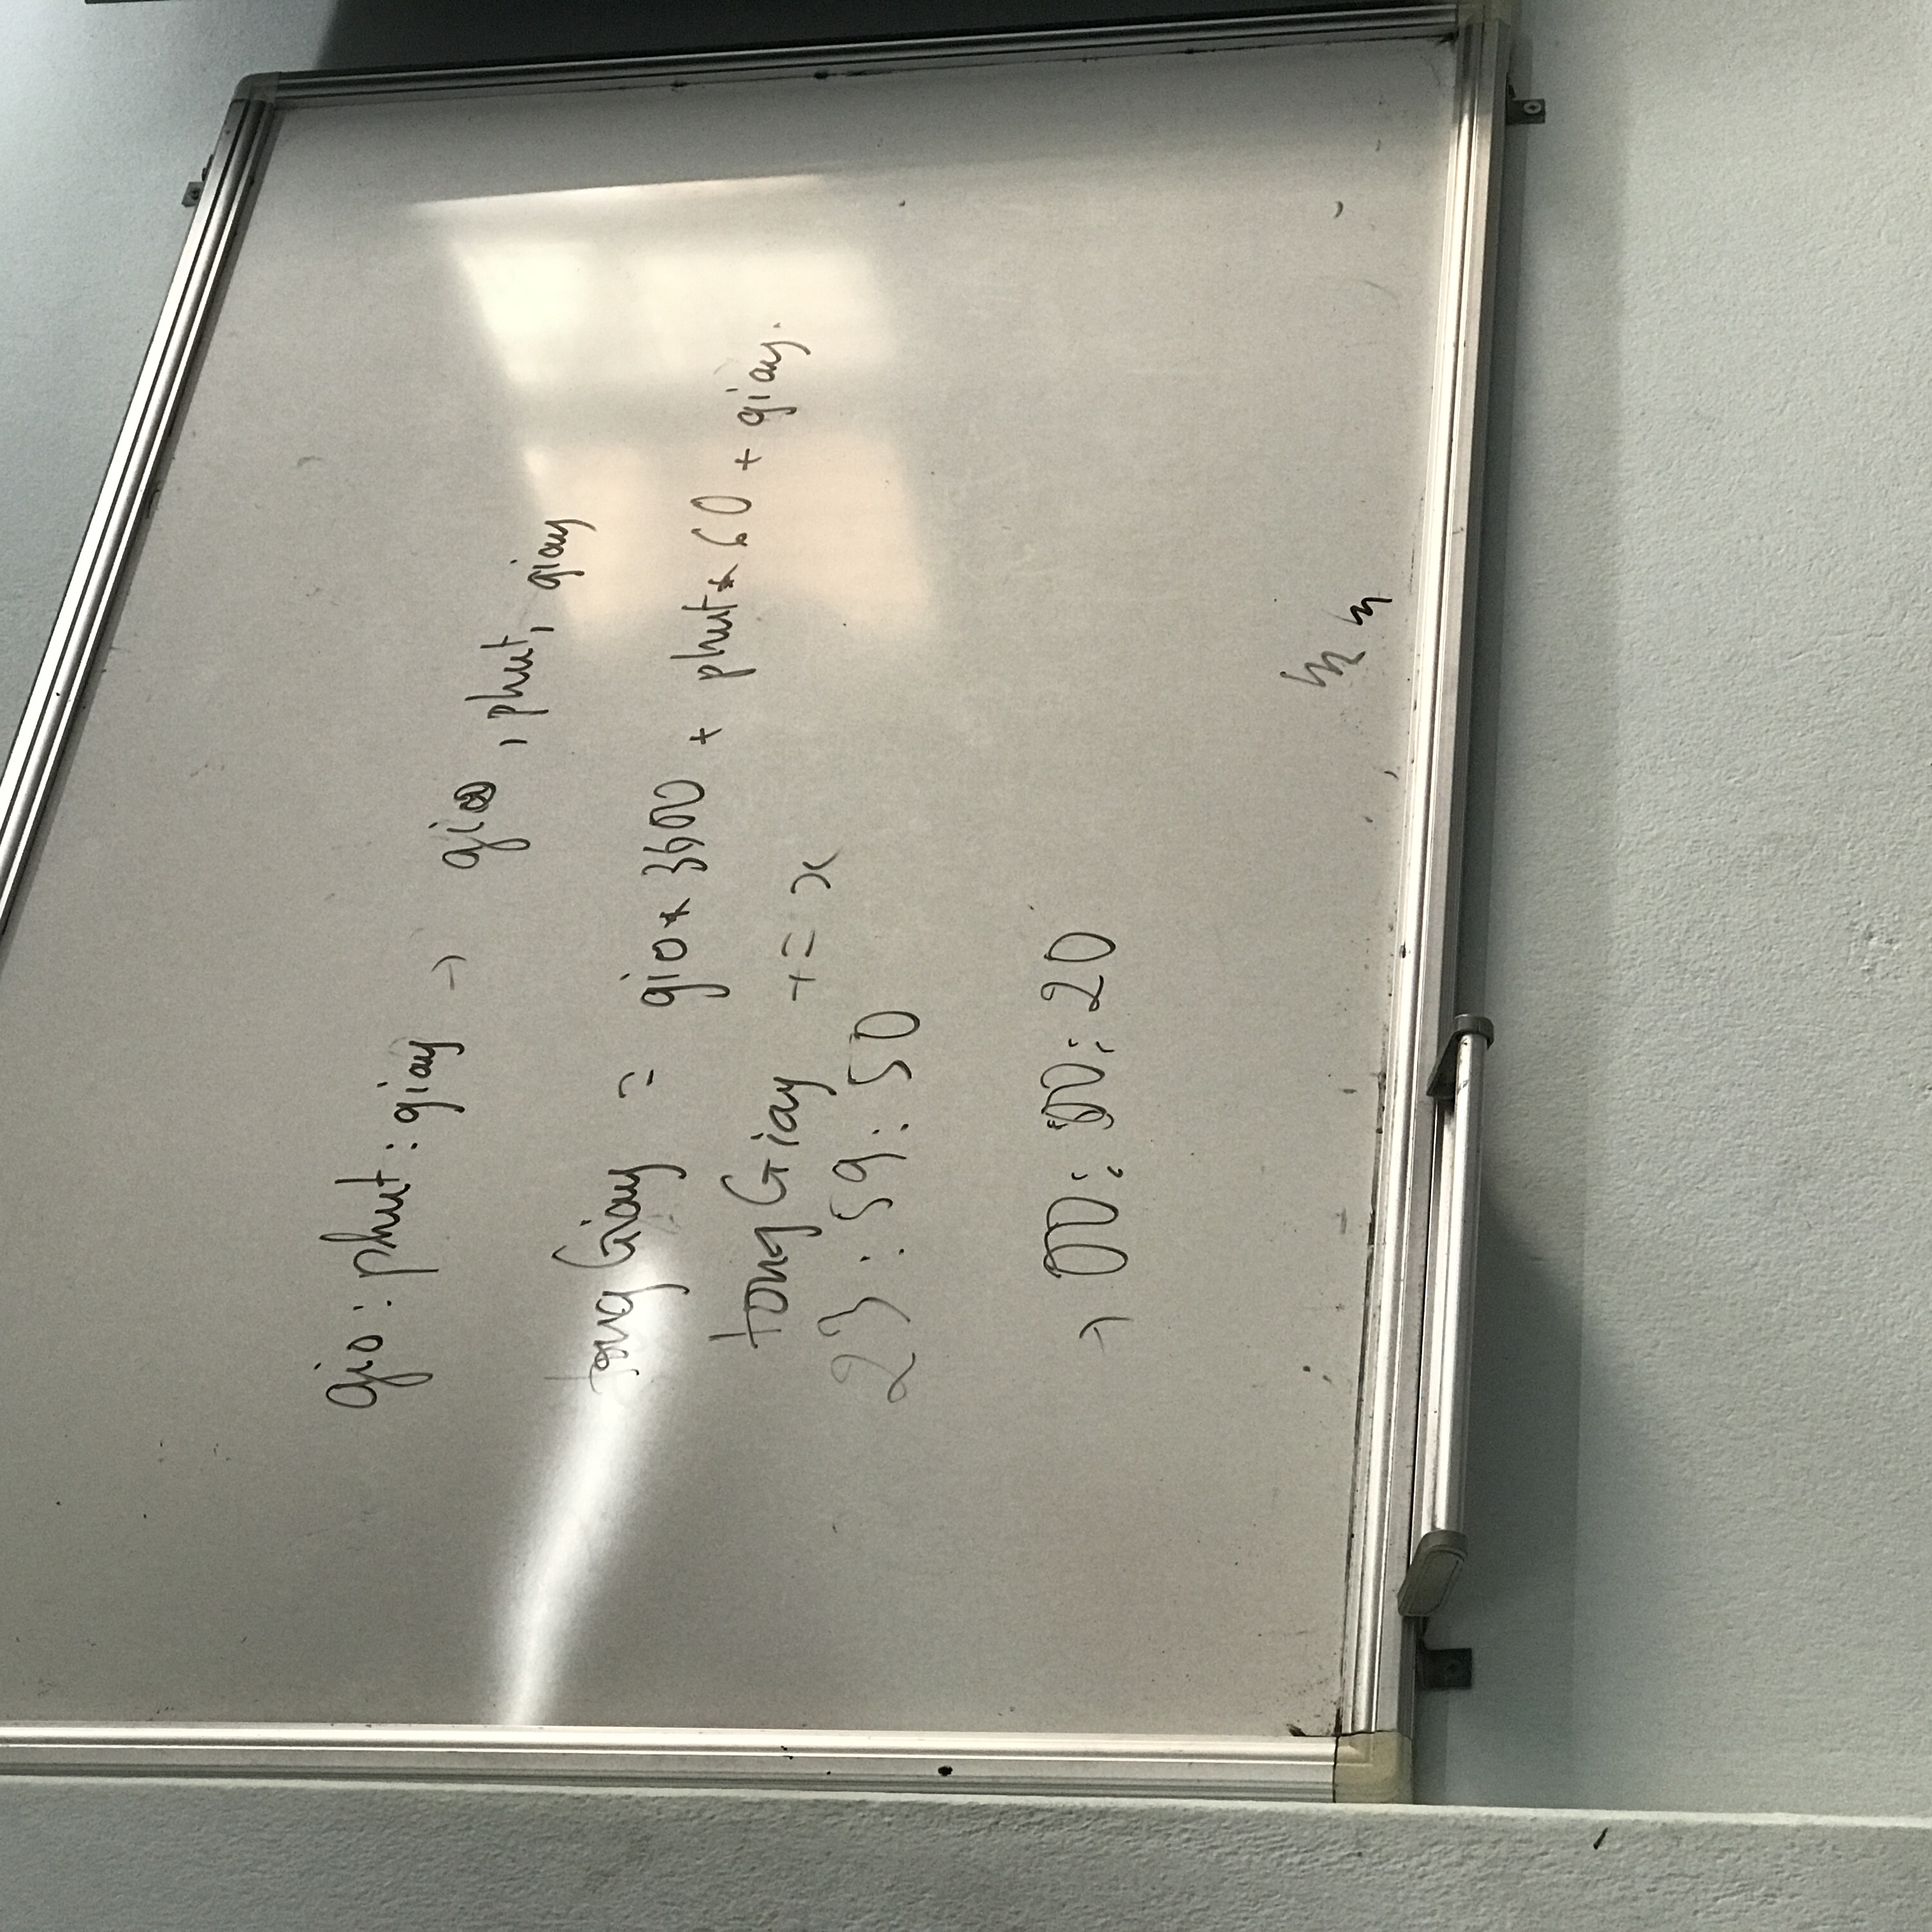 gio : phut : giay → gio , phut, giay
tongGiay = gio * 3600 + phut * 60 + giay.
tongGiay += x
23 : 59 : 50
→ 00 : 00 : 20